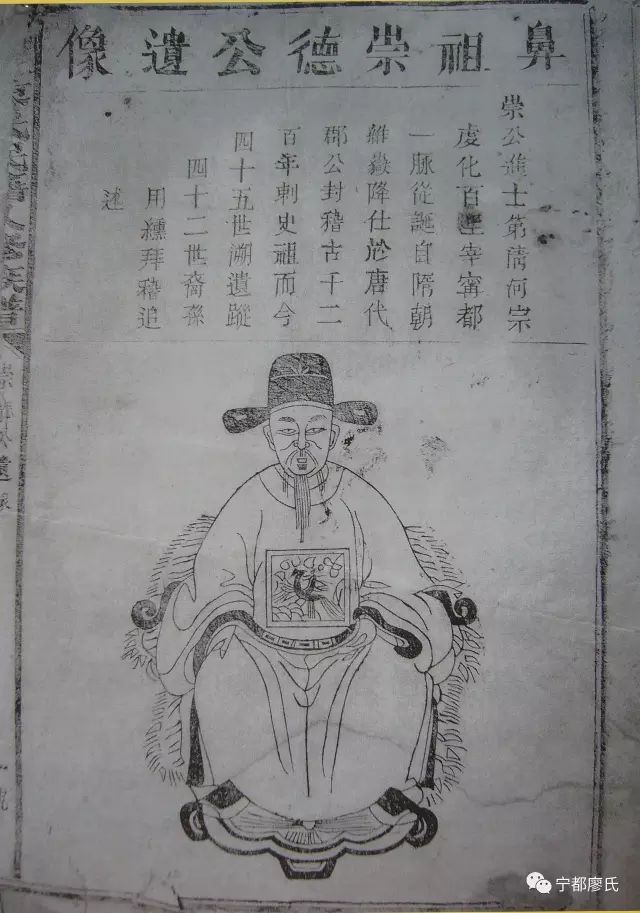 鼻祖崇德公遺像
崇公進士第清河宗
虔化百里宰甯都
一脉從誕自隋朝
維嶽降仕於唐代
郡公封稽古千二
百年刺史祖而今
四十五世溯遺蹤
四十二世裔孫
用纁拜稽追
述
崇德公遺像
宁都廖氏